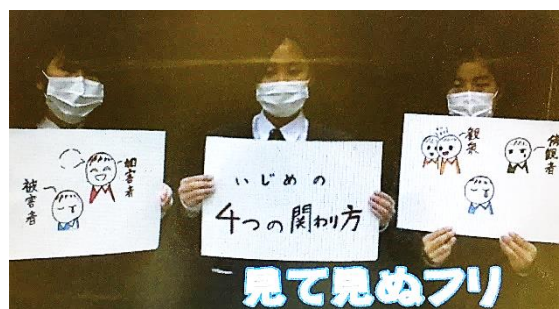 被害者
加害者
いじめの
4つの関わり方
観衆
傍観者
見て見ぬフリ